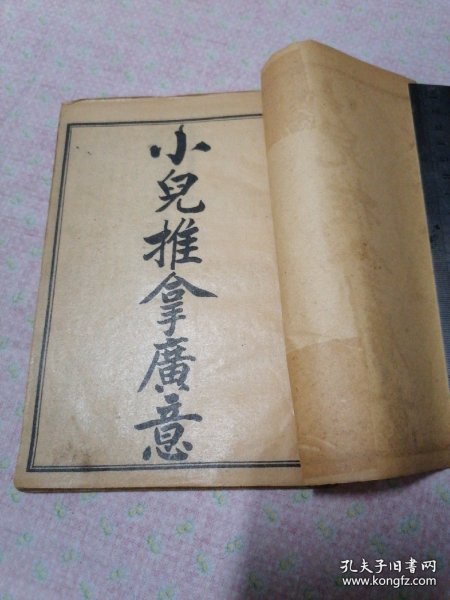 小兒推拿廣意
孔夫子旧书网
www.kongfz.com